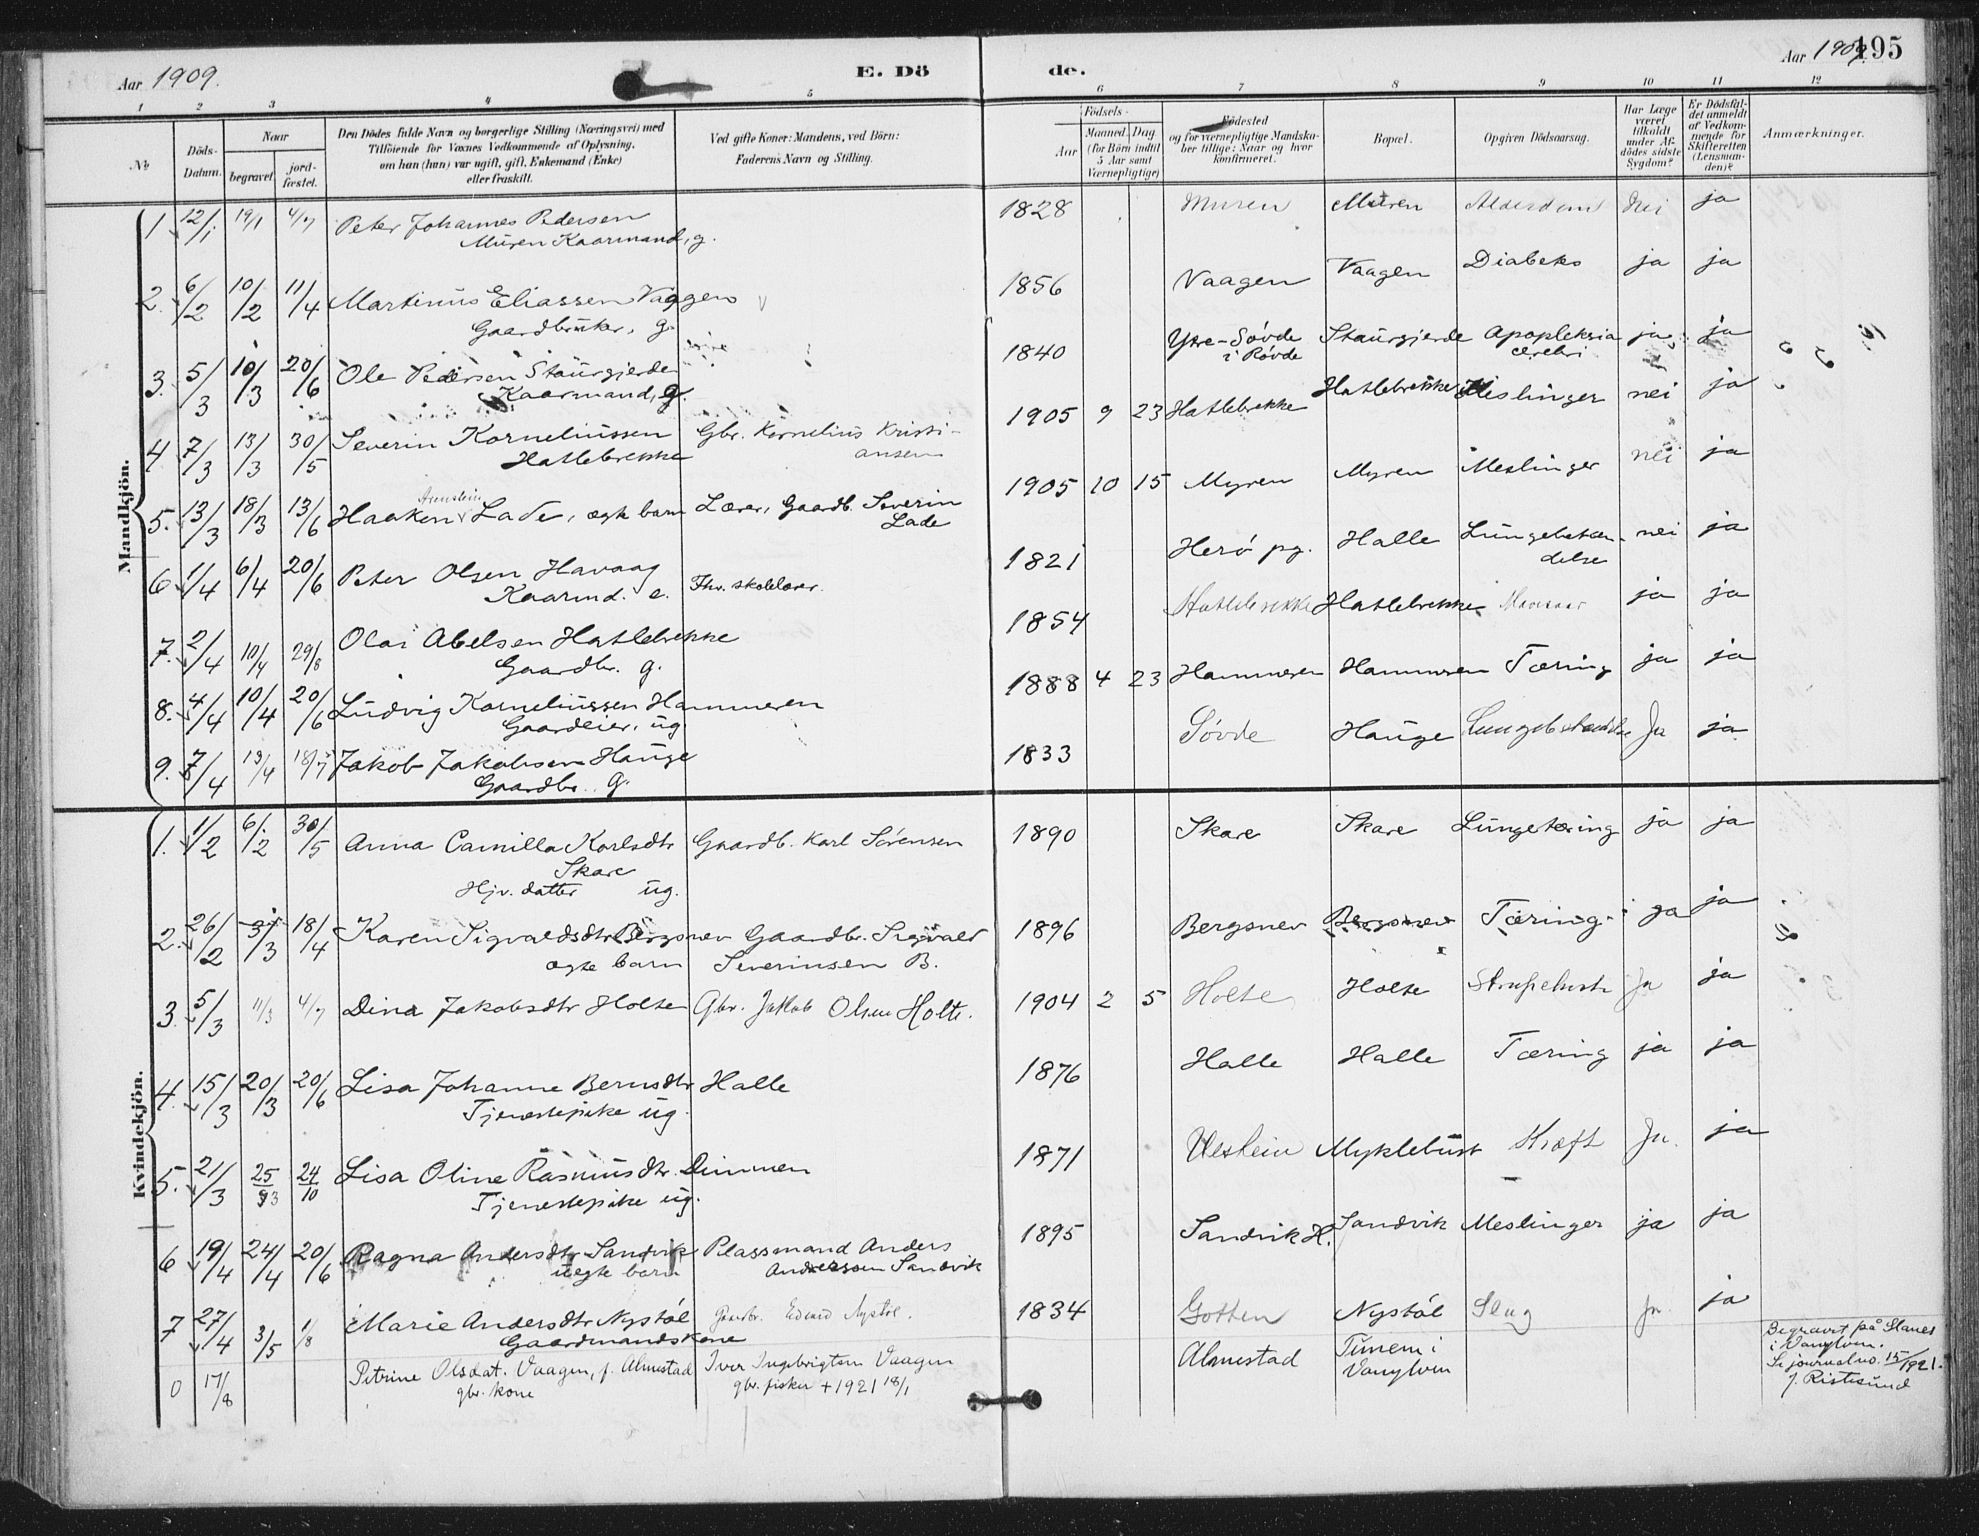 Aar 1909.
E. Dö de.
Aar 1909.
195
1 2 3 4 5 6 7 8 9 10 11 12
No
Döds-Datum.
Naar
begravet.
jord-fæstet.
Den Dödes fulde Navn og borgerlige Stilling (Næringsvei) med
Tilföiende for Voxnes Vedkommende af Oplysning,
om han (hun) var ugift, gift, Enkemand (Enke)
eller fraskilt.
Ved gifte Koner: Mandens, ved Börn:
Faderens Navn og Stilling.
Födsels-
Aar
Maaned. Dag
(for Börn indtil
5 Aar samt
Værnepligtige)
Födested
og for værnepligtige Mandska-
ber tillige: Naar og hvor
konfirmeret.
Bopæl.
Opgiven Dödsaarsag.
Har Læge
været
tilkaldt
under Af-
dödes sidste
Sygdom?
Er Dödsfal-
det anmeldt
af Vedkom-
mende for
Skifteretten
(Lensman-
den)?
Anmærkninger.
Mandkjön.
1 12/1 19/1 4/7 Peter Johannes Pedersen 1828 Muren Muren Alderdom Nei ja
Muren Kaarmand, g.
2. 6/2 10/2 11/4 Martinus Eliassen Vaagen 1856 Vaagen Vaagen Diabetes ja ja
Gaardbruker, g.
3. 5/3 10/3 20/6 Ole Pedersen Staurgjerde 1840 Ytre-Søvde i Rovde Staurgjerde Apopleksia cerebri ja ja
Kaarmand, g.
4 7/3 13/3 30/5 Severin Korneliussen Gbr. Kornelius Kristi- 1905 9 23 Hatlebrekke Hatlebrekke Meslinger nei ja
Hatlebrekke ansen
5. 13/3 18/3 13/6 Haakon Arnstein Lade, ægte barn Lærer, Gaardb. Severin 1905 10 15 Myren Myren Meslinger nei ja
Lade
6 1/4 6/4 20/6 Peter Olsen Havaag Fhv. skolelærer. 1821 Herø pg. Halle Lungebetæn- nei ja
Kaarmd. e. delse
7. 2/4 10/4 29/8 Olai Abelsen Hatlebrekke 1854 Hatlebrekke Hatlebrekke ja ja
Gaardbr. g.
8. 4/4 10/4 20/6 Ludvig Korneliussen Hammeren 1888 4 23 Hammeren Hammeren Tæring ja ja
Gaardeier, ug.
9. 7/4 13/4 18/7 Jakob Jakobsen Hauge 1833 Søvde Hauge Ja ja
Gaardbr. g.
Kvindekjön.
1. 1/2 6/2 30/5 Anna Camilla Karlsdtr Gaardb. Karl Sørensen 1890 Skare Skare Lungetæring ja ja
Skare
Hjv. datter ug.
2. 26/2 3/3 18/4 Karen Sigvaldsdtr Bergsnev Gaardbr. Sigvald 1896 Bergsnev Bergsnev Tæring ja ja
ægte barn Severinsen B.
3. 5/3 11/3 4/7 Dina Jakobsdtr Holte Gbr. Jakob Olsen Holte. 1904 2 5 Holte Holte Strupehoste Ja ja
4. 15/3 20/3 20/6 Lisa Johanne Berntsdtr Halle 1876 Halle Halle Tæring ja ja
Tjenestepike ug.
5. 21/3 25/3 24/10 Lisa Oline Rasmusdtr. Dimmen 1871 Myklebust Kræft Ja. ja
Tjenestepike ug.
6 19/4 24/4 20/6 Ragna Andersdtr Sandvik Plassmand Anders 1895 Sandvik H. Sandvik Meslinger ja ja
uegte barn Anderssen Sandvik
7 27/4 3/5 1/8 Marie Andersdtr Nystøl Gaardbr. Edvard Nystøl. 1834 Gotten Nystøl Slag Ja. ja
Gaardmandskone
0 17/8 Petrine Olsdat. Vaagen, f. Almestad Iver Ingebrigtsen Vaagen Almestad Tunem i
gbr. kone gbr. fisker + 1921 18/1 Vanylven
Begravet på Slanes
i Vanylven.
Se journalno. 15/1921.
J. Ristesund